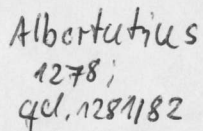 Albertutius
1278;
gel. 1281/82